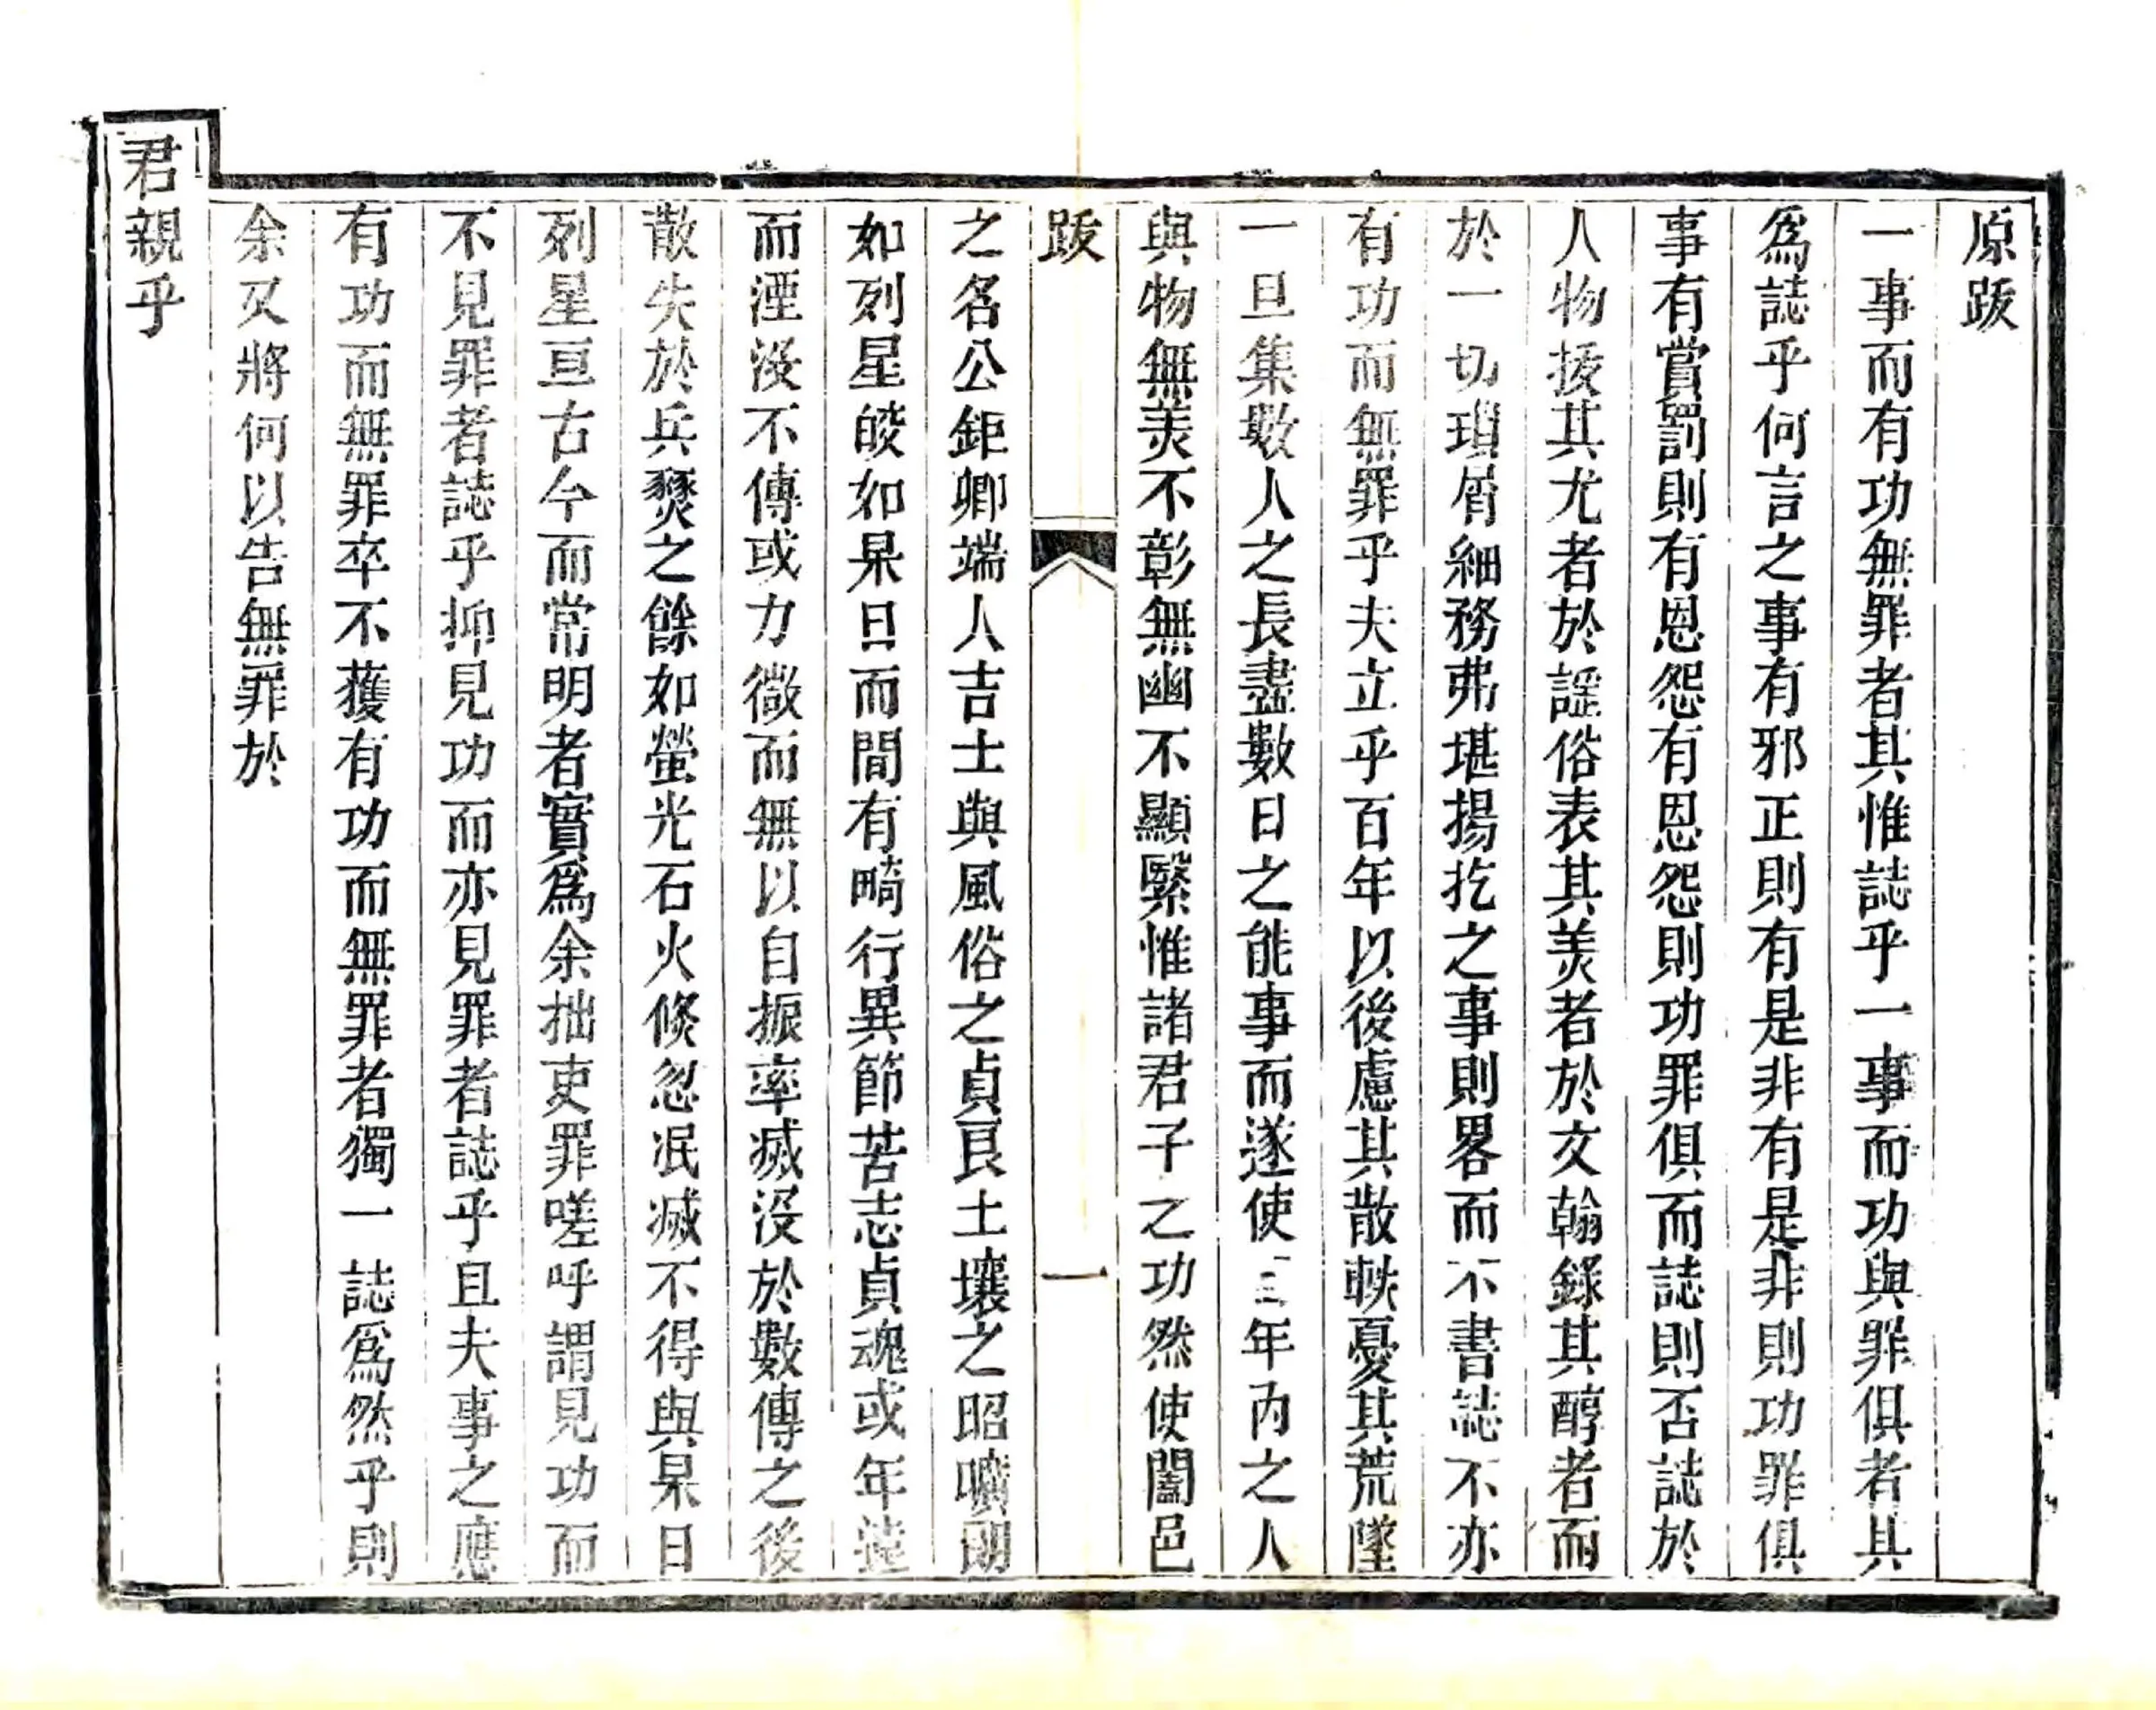 原䟦
一事而有功無罪者其惟誌乎一事而功與罪俱者其
爲誌乎何言之事有邪正則有是非有是非則功罪俱
事有賞罰則有恩怨有恩怨則功罪俱而誌則否誌於
人物掞其尤者於謡俗表其美者於文翰錄其醇者而
於一切瑣屑細務弗堪揚扢之事則畧而不書誌不亦
有功而無罪乎夫立乎百年以後慮其散軼憂其荒墜
一旦集數人之長盡數日之能事而遂使三年内之人
與物無美不彰無幽不顯緊惟諸君子之功然使闔邑
䟦
一
之名公鉅卿端人吉士與風俗之貞良土壤之昭曠朗
如列星皎如杲日而間有畸行異節苦志貞魂或年遠
而湮沒不傳或力微而無以自振率滅沒於數傳之後
散失於兵燹之餘如螢光石火倐忽泯滅不得與杲日
列星亘古今而常明者實爲余拙吏罪嗟呼謂見功而
不見罪者誌乎抑見功而亦見罪者誌乎且夫事之應
有功而無罪卒不獲有功而無罪者獨一誌爲然乎則
余又將何以告無罪於
君親乎